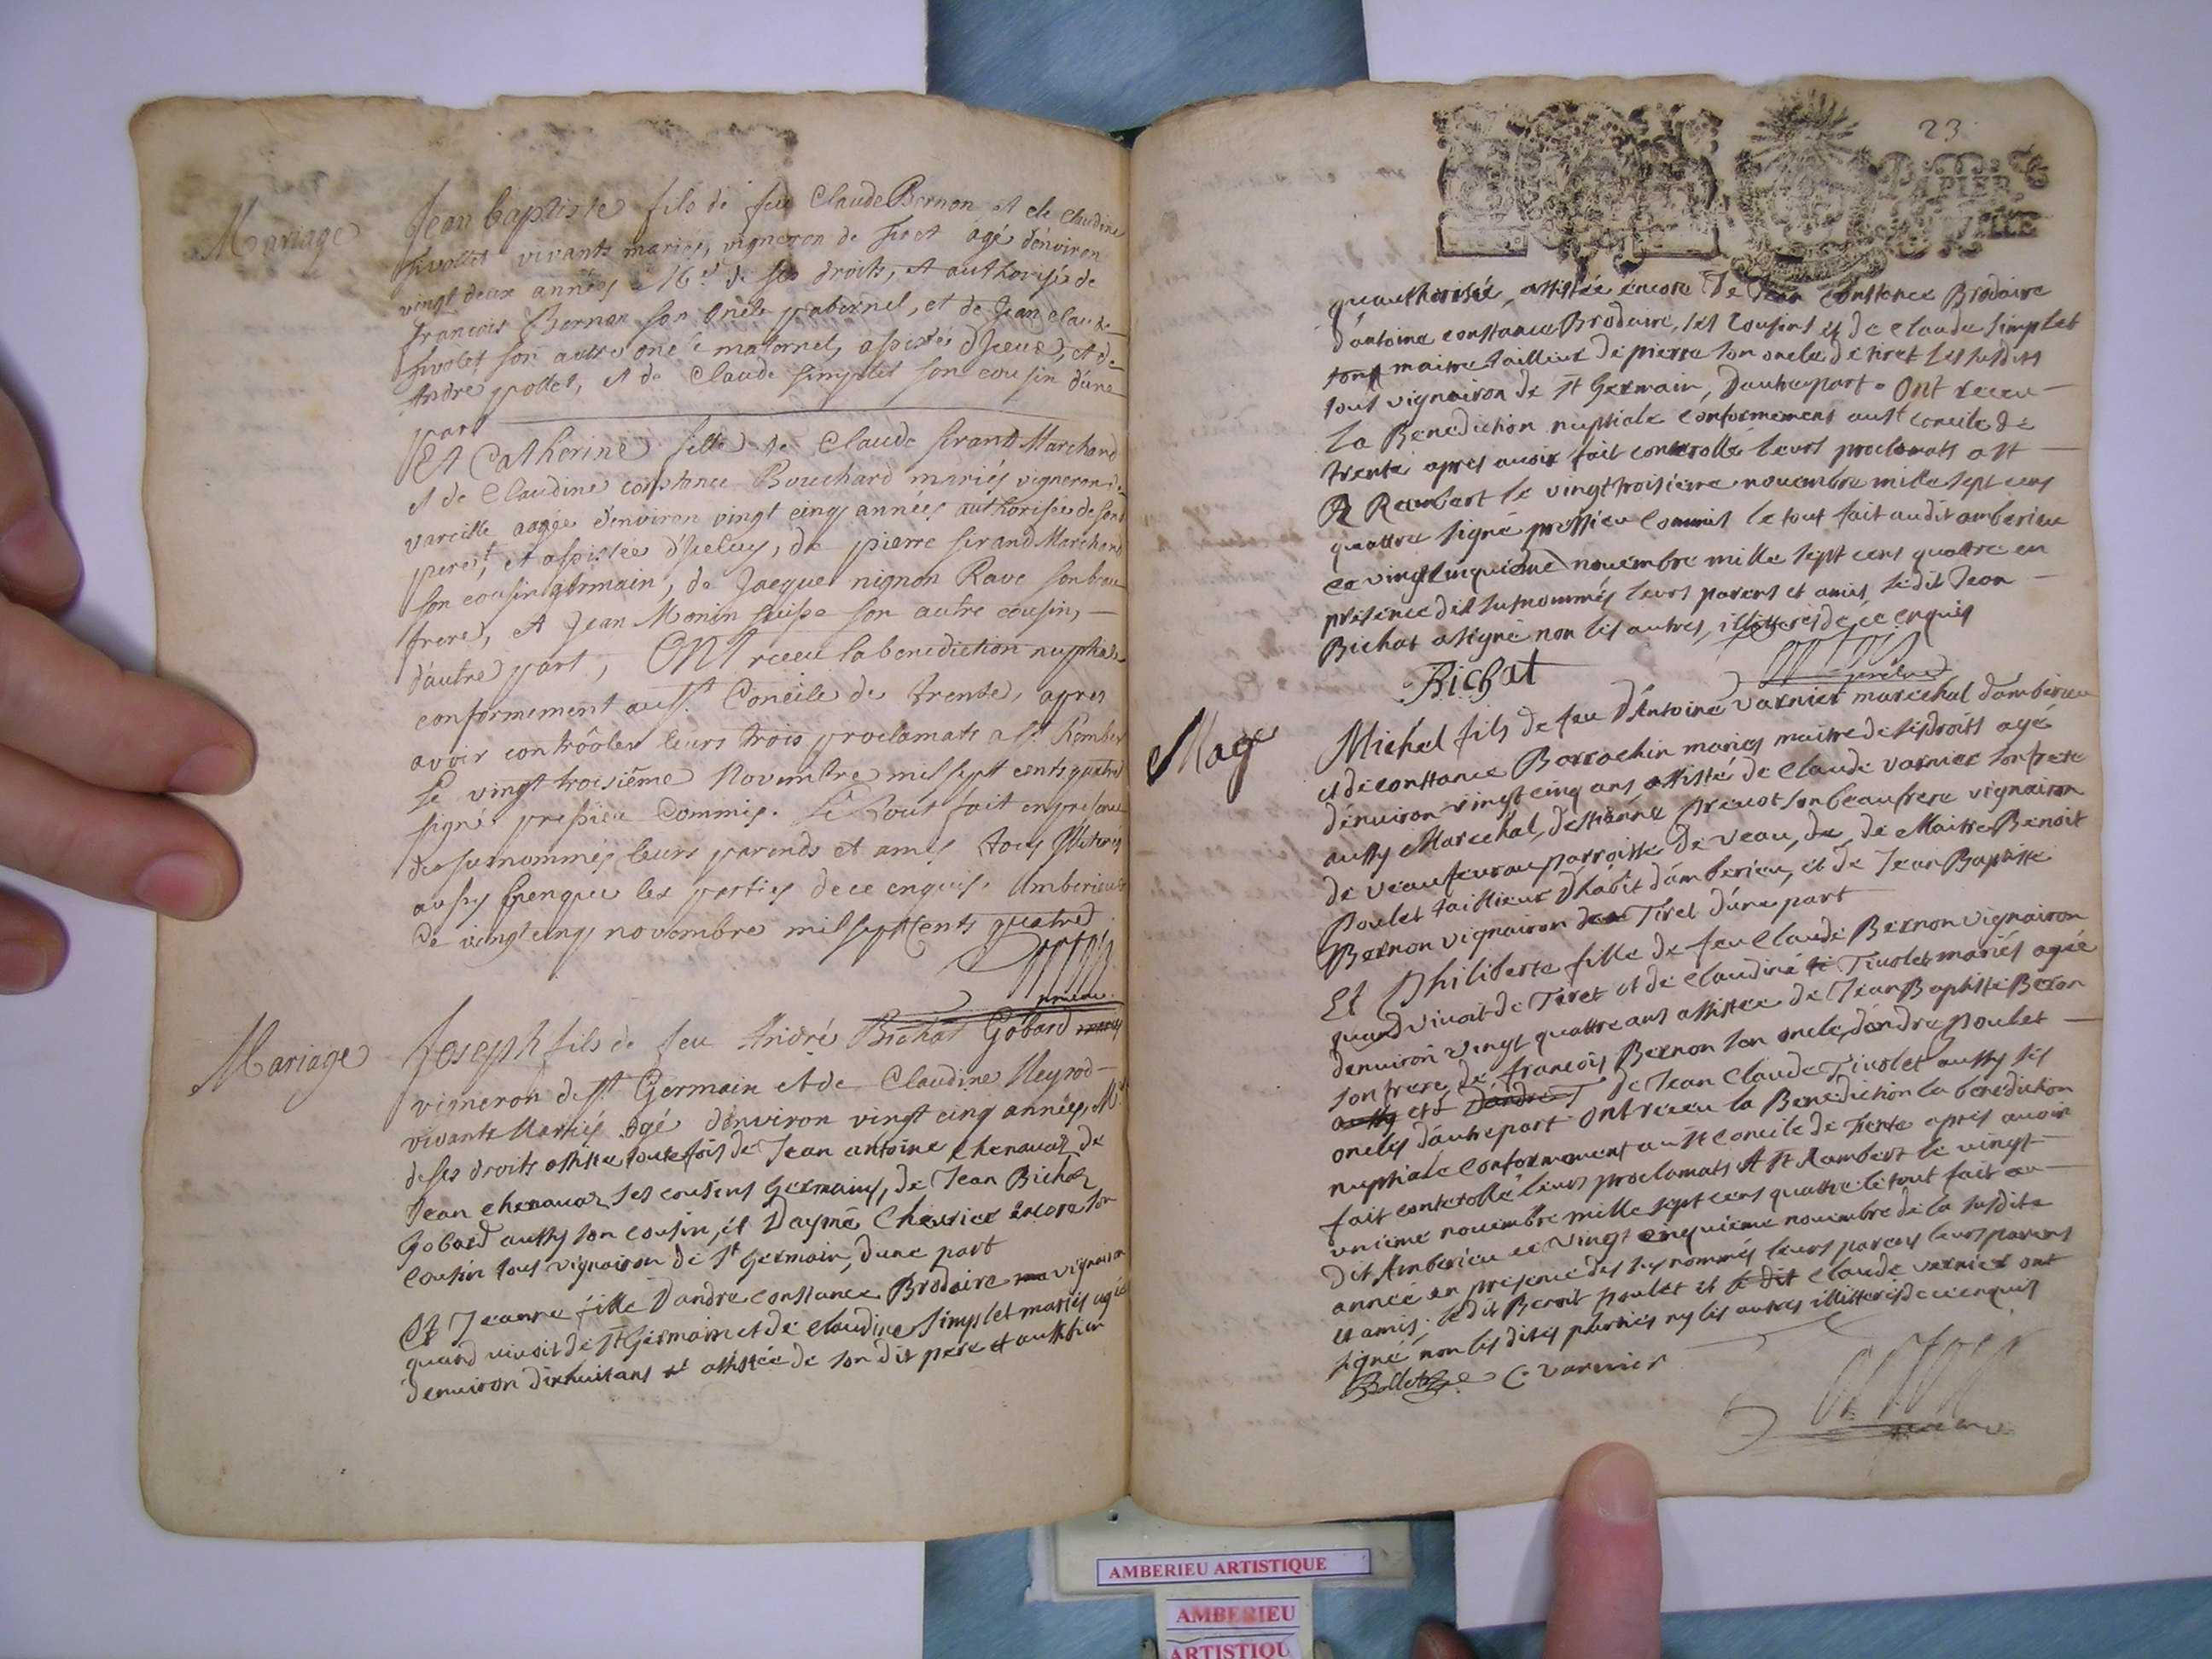 Mariage
Jean baptiste fils de feu Claude Bernon et de Claudine
vivants mariés, vigneron de agé d'environ
vingt deux années Me. de ses droits, et authorisé de
françois Bernon son oncle paternel, et de Jean claude
son autre oncle maternel, assistés d'Iceux, et de
André pollet, et de Claude simplet son cousin d'une
part
Et Catherine fille de Claude Marchand
et de Claudine constance Bouchard mariés vigneron de
vareille aagée d'environ vingt cinq années authorisée de son
pere, et assistée d'Iceluy, de pierre Marchand
son cousin germain, de Jacque nignon Rave son beau
frere, et Jean Monin son autre cousin,
d'autre part, ONT receu la benediction nuptiale
conformement au st. Concile de trente, apres
avoir contrôoler leurs trois proclamats a st. Rambert
le vingt troisiême Novembre mil sept cents quatre
signé pressieu Commis. Le tout fait en presence
des surnommés leurs parends et amis tous Illiterés
aussy bien que les parties de ce enquis. Amberieu
ce vingt cinq novembre mil sept cents quatre
Mariage
Joseph fils de feu André Bichat Gobard
vigneron de st. Germain et de Claudine Neyrod
vivants Mariés agé d'environ vingt cinq années, Me.
de ses droits assisté toutefois de Jean antoine chenavaz de
Jean chenavaz ses cousins Germains, de Jean Bichat
Gobard aussy son cousin, et D'aymé Chevrier encore son
Cousin tous vignairon de st Germain, d'une part
Et Jeanne fille D'andre constance Brodaire vignairon
quand vivoit de st Germain et de claudine Simplet mariés agée
denuiron dixhuit ans et assistée de son dit pere et aussi bien
23
PAPIER
qu'authorisée, assistée encore De Jean Constance Brodaire
d'antoine constance Brodaire, ses Cousins et de Claude Simplet
maitre tailleur de pierre son oncle de tiret les susdits
tous vignairon de st Germain, D'autre part. Ont receu
La Benediction nuptiale conformement au st concile de
trente apres avoir fait conterollé leurs proclamats a st
Rambert le vingt troisieme novembre mille sept cens
quattre signé pressieu Commis le tout fait audit amberieu
ce vingt cinquieme novembre mille sept cens quattre en
presence des susnommés leurs parens et amis ledit Jean
Bichat a signé non les autres, illitterés de ce enquis
Bichat
Mage
Michel fils de feu D'Antoine Varnier marechal d'amberieu
et de constance Barrachin mariés maitre de ses droits agé
d'enuiron vingt cinq ans assisté de Claude varnier son frere
aussy Marechal, d'estienne son beaufrere vignairon
de parroisse de Veau, de Maitre Benoit
Poulet taillieur D'habit d'amberieu, et de Jean Baptiste
Bernon vignairon de Tiret d'une part
Et Philiberte fille de feu Claude Bernon vignairon
quand vivoit de Tiret et de Claudine Tivolet mariés agée
denuiron vingt quattre ans assistée de Jean Baphiste
son frere, de francois Bernon son oncle, d'andre poulet
et de Jean Claude Tivolet aussy ses
oncles d'autre part ont receu la Benediction la benediction
nuptiale Conformement au st Concile de Trente apres avoir
fait conterollé leurs proclamats A st Rambert le vingt
unieme novembre mille sept cens quattre le tout fait au
dit Amberieu ce vingt cinquieme novembre de la susdite
année en presence des susnommés leurs parens leurs parens
et amis. ledit Benoit poulet et le dit Claude varnier ont
signé non les dites parties ny les autres illitterés de ce enquis
C. varnier
AMBERIEU ARTISTIQUE
AMBERIEU
ARTISTIQU